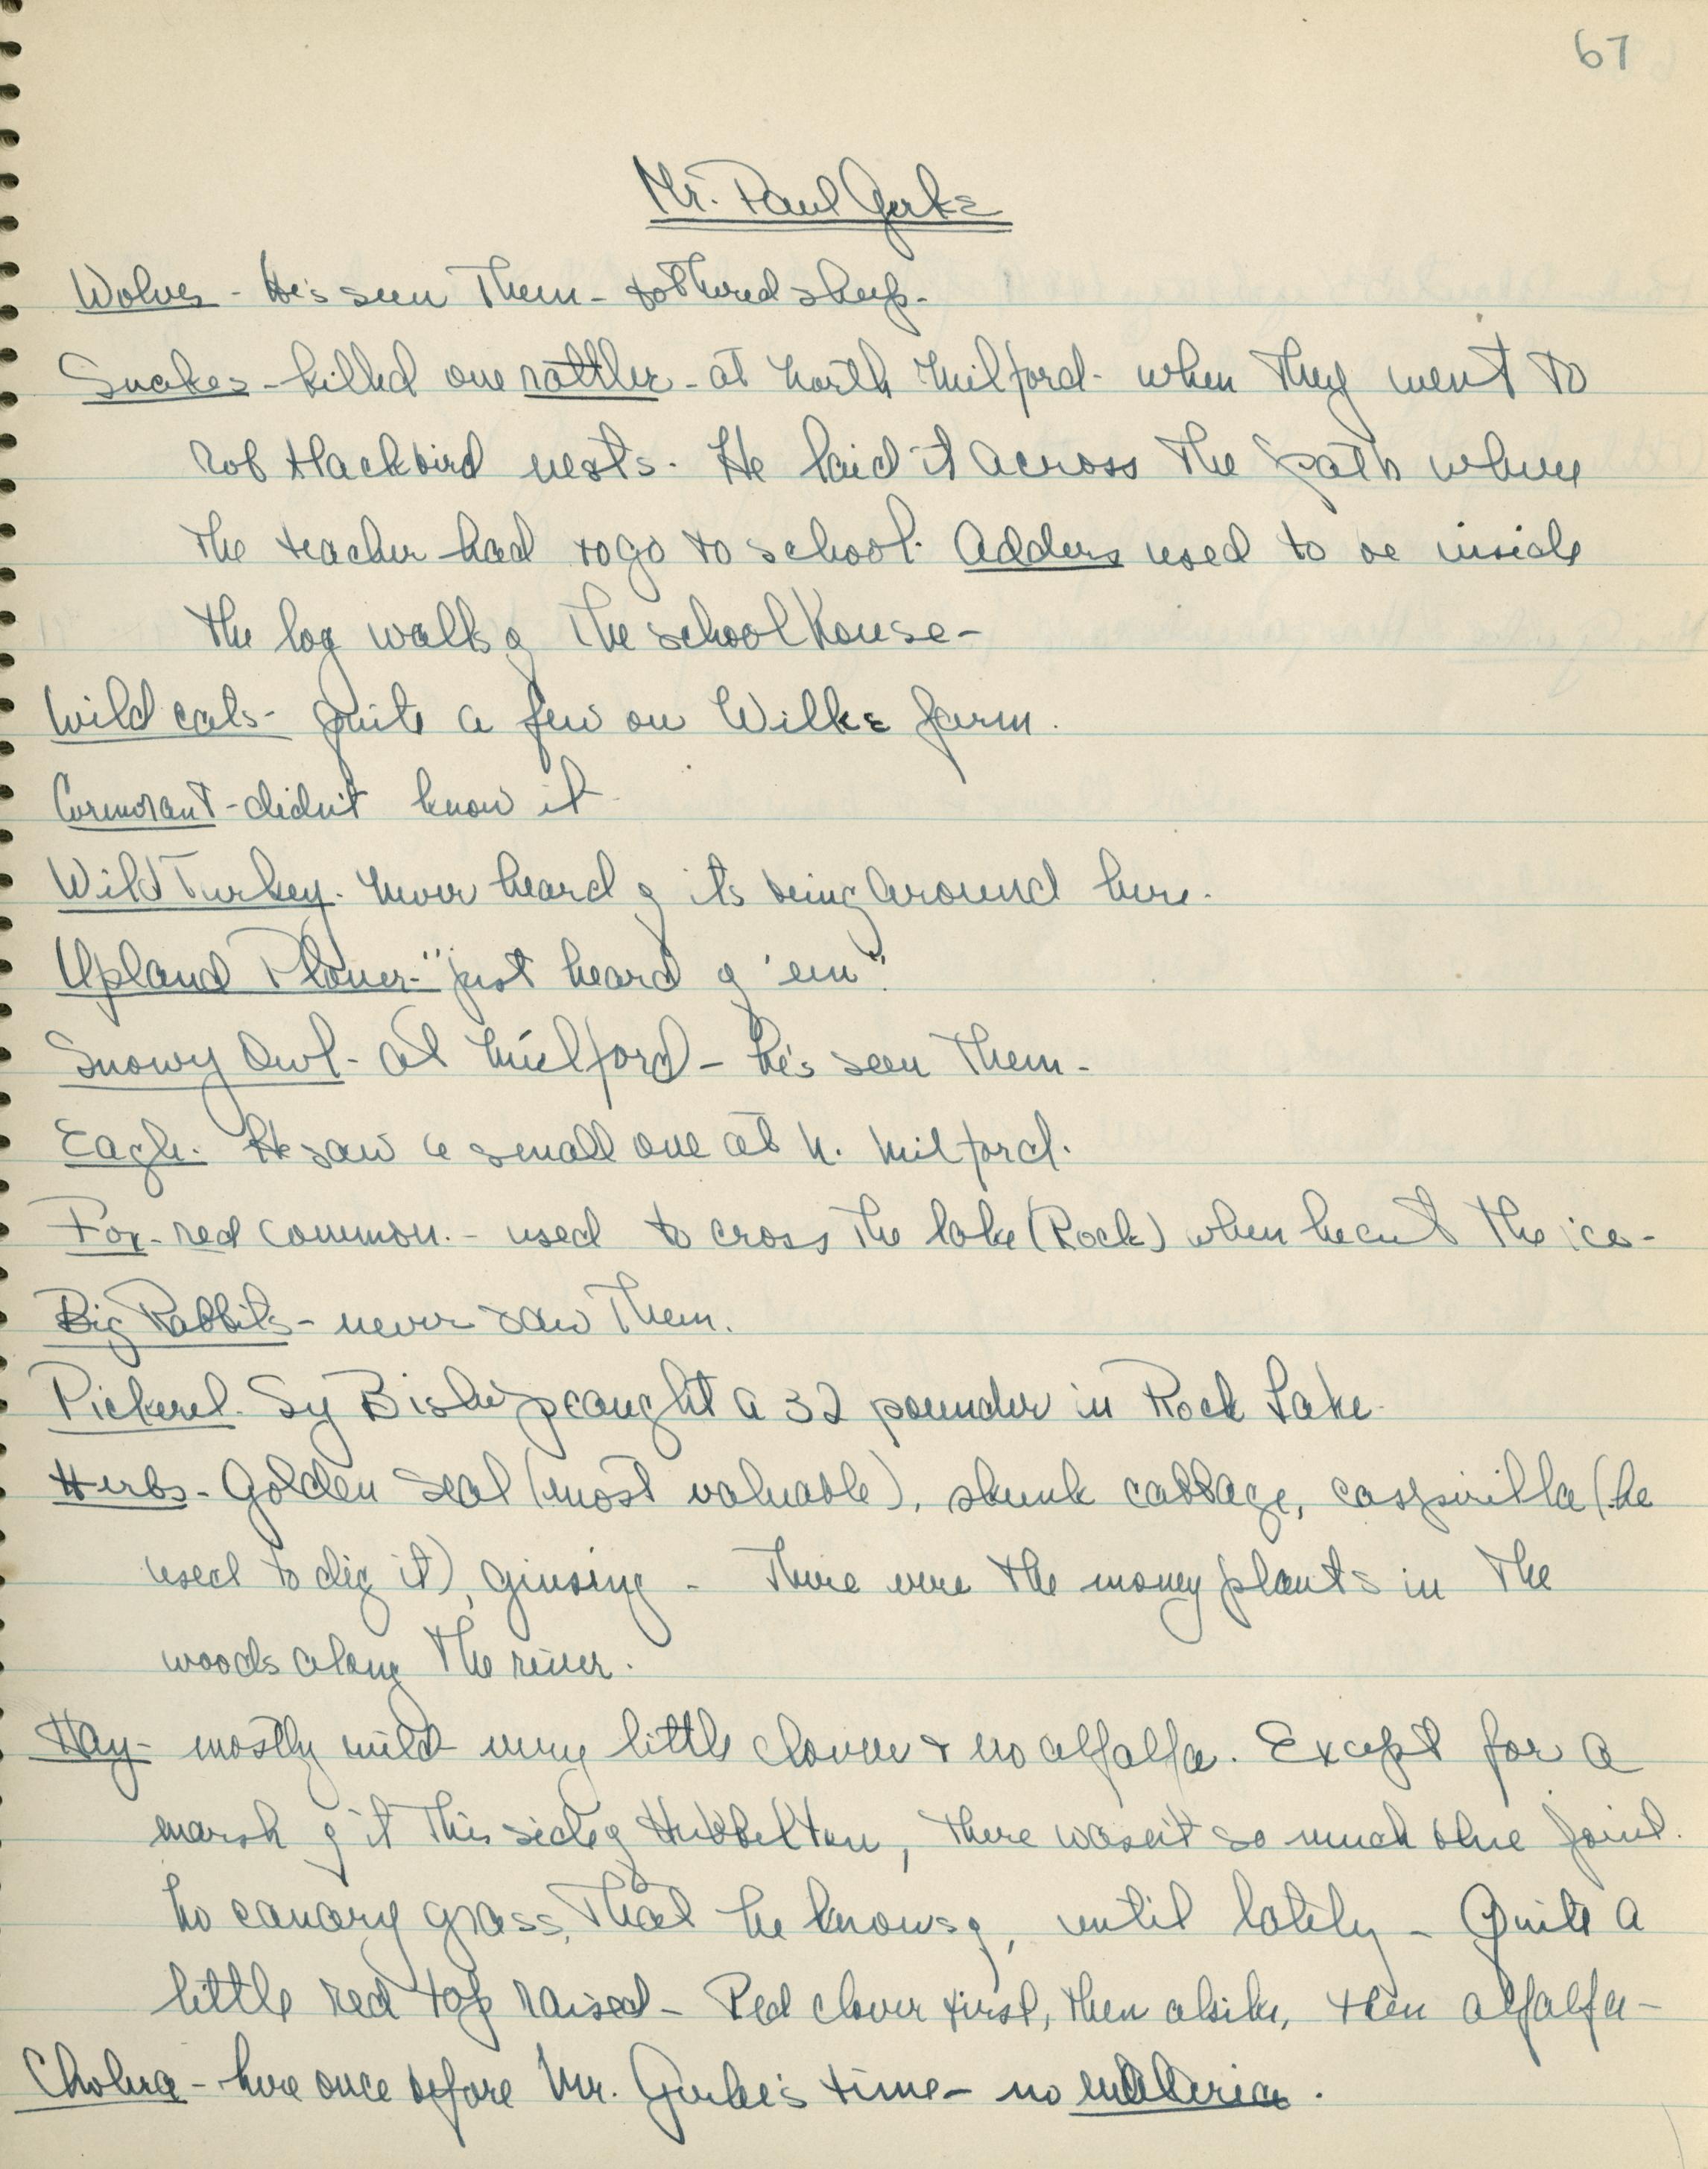 67
Mr. Paul Gerke
Wolves - He's seen Them - bothered sheep -
Snakes - killed one rattler - at North Milford - when They went to
rob blackbird nests. He laid it across The path where
The teacher had to go to school. Adders used to be inside
the log walls of The school house -
Wild cats - Quite a few on Wilke farm.
Cormorant - didn't know it
Wild Turkey. Never heard of its being around here.
Upland Plover - "just heard of 'em".
Snowy Owl - at Milford - he's seen Them -
Eagle. He saw a small one at N. Milford.
Fox - red common. - used to cross The lake (Rock) when he cut The ice -
Big Rabbits - never saw Them.
Pickerel. Sy Bishop caught a 32 pounder in Rock Lake.
Herbs - Golden Seal (most valuable), skunk cabbage, caspirilla (he
used to dig it), ginsing - These were the money plants in The
woods along The river.
Hay - mostly wild very little clover & no alfalfa. Except for a
marsh of it This side of Hubbelton, There wasn't so much blue joint.
No canary grass, That he knows of, until lately - Quite a
little red top raised - Red clover first, then alsike, then alfalfa -
Cholera - here once before Mr. Gerke's time - no malaria.